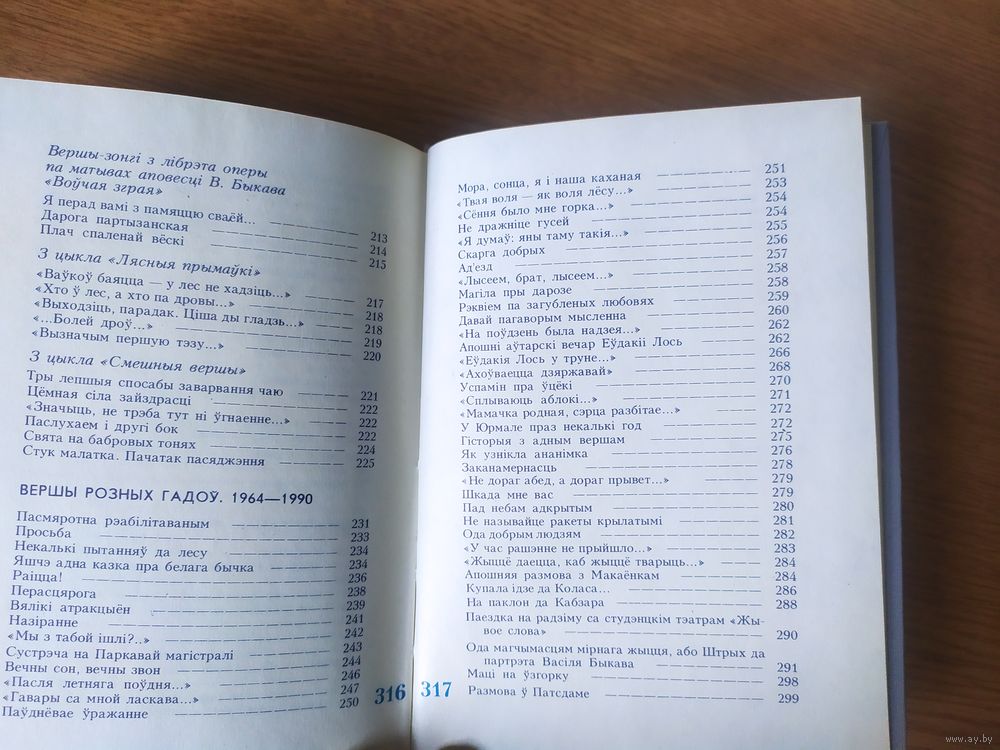 Вершы-зонгі з лібрэта оперы
па матывах аповесці В. Быкава
«Воўчая зграя»
Я перад вамі з памяццю сваёй... 213
Дарога партызанская 214
Плач спаленай вёскі 215
З цыкла «Лясныя прымаўкі»
«Ваўкоў баяцца — у лес не хадзіць...» 217
«Хто ў лес, а хто па дровы...» 218
«Выходзіць, парадак. Ціша ды гладзь...» 218
«...Болей дроў...» 219
«Вызначым першую тэзу...» 220
З цыкла «Смешныя вершы»
Тры лепшыя спосабы заварвання чаю 221
Цёмная сіла зайздрасці 222
«Значыць, не трэба тут ні ўгнаенне...» 222
Паслухаем і другі бок 222
Свята на бабровых тонях 224
Стук малатка. Пачатак пасяджэння 225
ВЕРШЫ РОЗНЫХ ГАДОЎ. 1964—1990
Пасмяротна рэабілітаваным 231
Просьба 233
Некалькі пытанняў да лесу 234
Яшчэ адна казка пра белага бычка 234
Раіцца! 236
Перасцярога 238
Вялікі атракцыён 239
Назіранне 241
«Мы з табой ішлі?..» 242
Сустрэча на Паркавай магістралі 243
Вечны сон, вечны звон 244
«Пасля летняга поўдня...» 246
«Гавары са мной ласкава...» 247
Паўднёвае ўражанне 250
316
Мора, сонца, я і наша каханая 251
«Твая воля — як воля лёсу...» 253
«Сёння было мне горка...» 254
Не дражніце гусей 254
«Я думаў: яны таму такія...» 255
Скарга добрых 256
Ад'езд 257
«Лысеем, брат, лысеем...» 258
Магіла пры дарозе 258
Рэквіем па загубленых любовях 259
Давай пагаворым мысленна 260
«На поўдзень была надзея...» 262
Апошні аўтарскі вечар Еўдакіі Лось 262
«Еўдакія Лось у труне...» 266
«Ахоўваецца дзяржавай» 268
Успамін пра ўцёкі 270
«Сплываюць аблокі...» 271
«Мамачка родная, сэрца разбітае...» 272
У Юрмале праз некалькі год 272
Гісторыя з адным вершам 275
Як узнікла ананімка 276
Заканамернасць 278
«Не дораг абед, а дораг прывет...» 279
Шкада мне вас 279
Пад небам адкрытым 280
Не называйце ракеты крылатымі 281
Ода добрым людзям 282
«У час рашэнне не прыйшло...» 283
«Жыццё даецца, каб жыццё тварыць...» 284
Апошняя размова з Макаёнкам 284
Купала ідзе да Коласа... 286
На паклон да Кабзара 288
Паездка на радзіму са студэнцкім тэатрам «Жы-
вое слова» 290
Ода магчымасцям мірнага жыцця, або Штрых да
партрэта Васіля Быкава 291
Маці на ўзгорку 298
Размова ў Патсдаме 299
317
www.ay.by